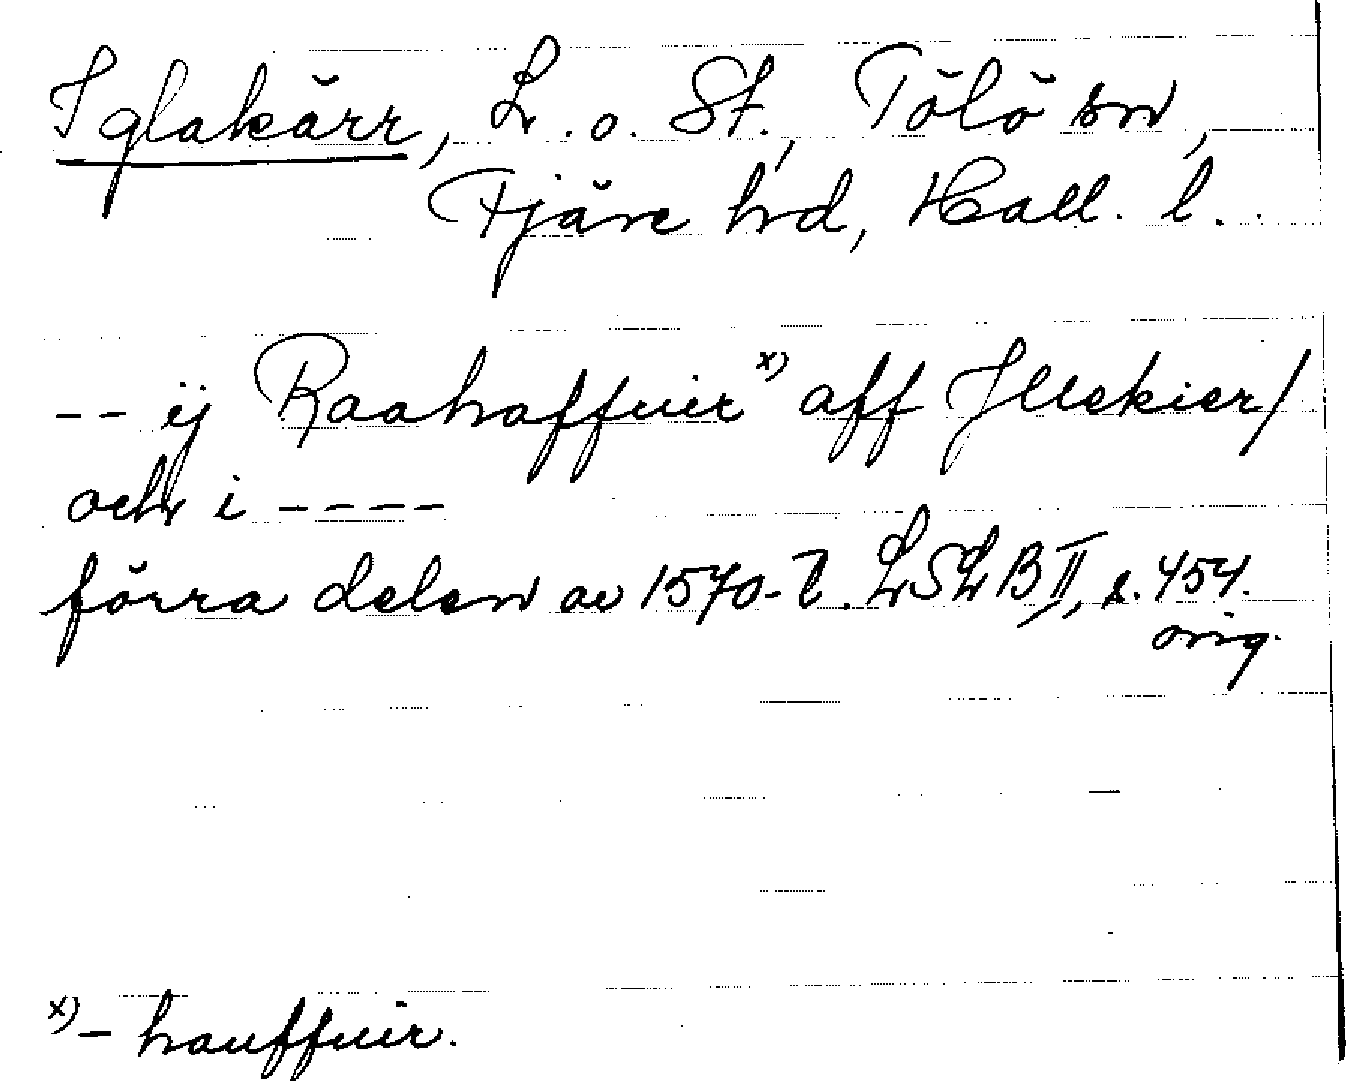 Iglakärr, L. o. St., Tölö sn,
Fjäre hrd, Hall. l.
-- ij Raahaffuir x) aff Jllekier/
och i ----
förra delen av 1570-t. LSLB II, s. 454.
orig.
x) - hauffuir.